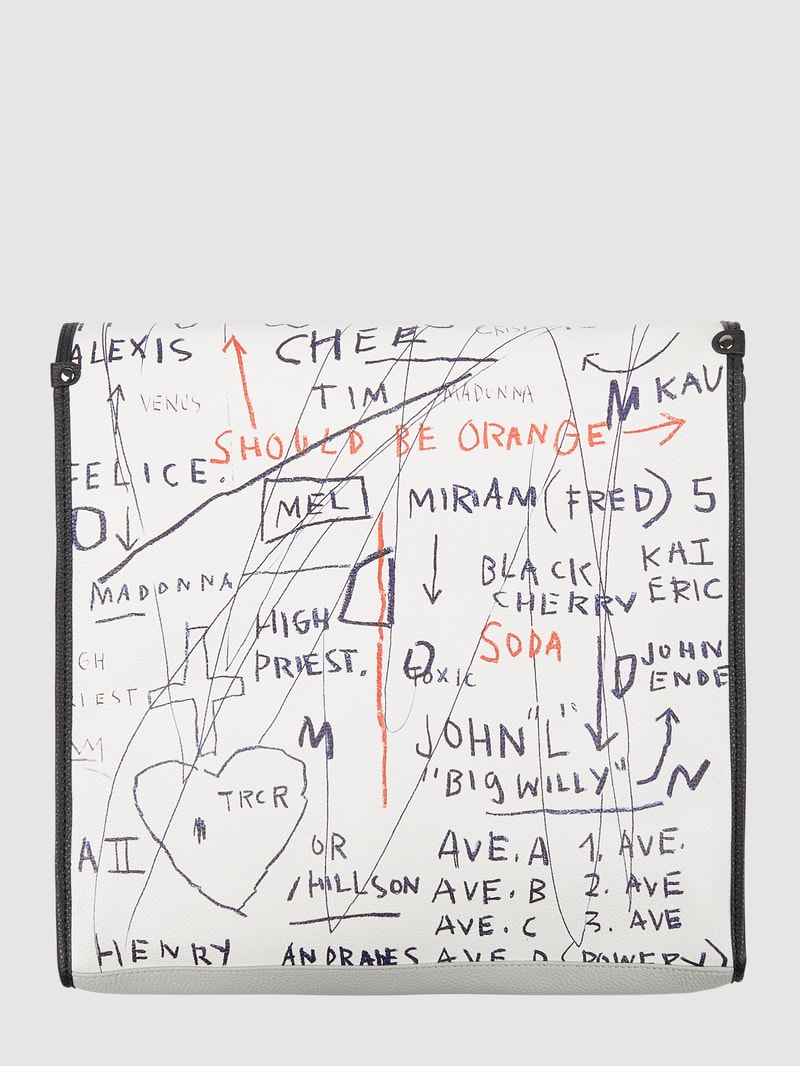 ALEXIS CHEE
VENUS TIM MADONNA M KAU
SHOULD BE ORANGE
FELICE.
MEL MIRIAM (FRED) 5
O
BLACK KAI
CHERRY ERIC
MADONNA
HIGH SODA
PRIEST. TOXIC JOHN
ENDE
GH
IEST
M JOHN "L"
"BIG WILLY" N
TRCR
AII OR AVE. A 1. AVE.
HILLSON AVE. B 2. AVE
AVE. C 3. AVE
HENRY ANDRADES AVE. D (BOWERY)